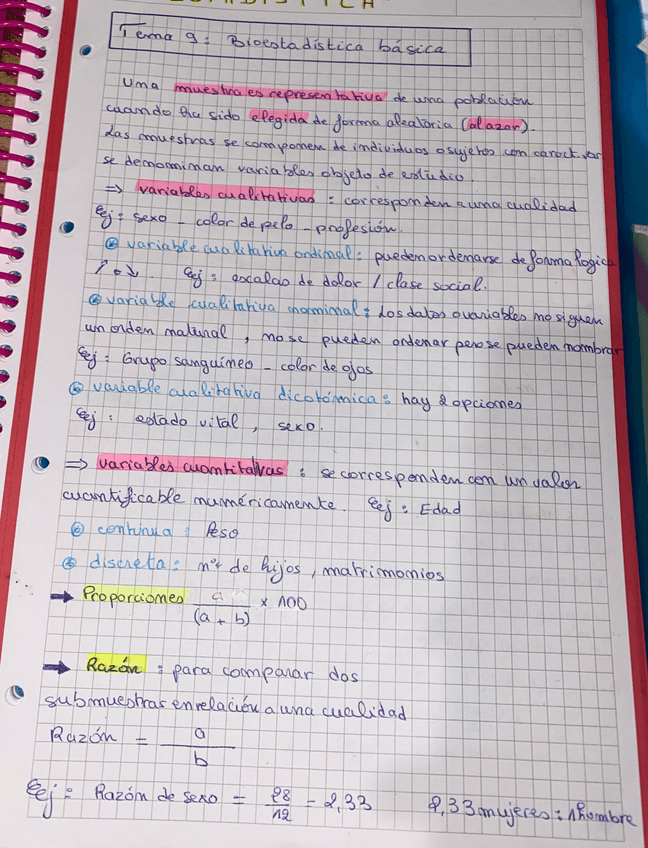 Tema 9: Bioestadística básica
Una muestra es representativa de una población
cuando ha sido elegida de forma aleatoria (al azar).
Las muestras se componen de individuos o sujetos con caract. var
se denominan variables objeto de estudio.
⇒ variables cualitativas: corresponden a una cualidad
Ej: sexo - color de pelo - profesión.
variable cualitativa ordinal: pueden ordenarse de forma logica
↑ o ↓. Ej: escalas de dolor / clase social.
variable cualitativa nominal: Los datos o variables no siguen
un orden natural, no se pueden ordenar pero se pueden nombrar
Ej: Grupo sanguíneo - color de ojos
variable cualitativa dicotómica: hay 2 opciones
Ej: estado vital, sexo.
⇒ variables cuantitativas: se corresponden con un valor
cuantificable numéricamente. Ej: Edad
continua: Peso
discreta: nº de hijos, matrimonios
→ Proporciones a/(a + b) × 100
→ Razón: para comparar dos
submuestras en relación a una cualidad
Razón = a/b
Ej: Razón de sexo = 28/12 = 2,33 2,33 mujeres: 1 hombre